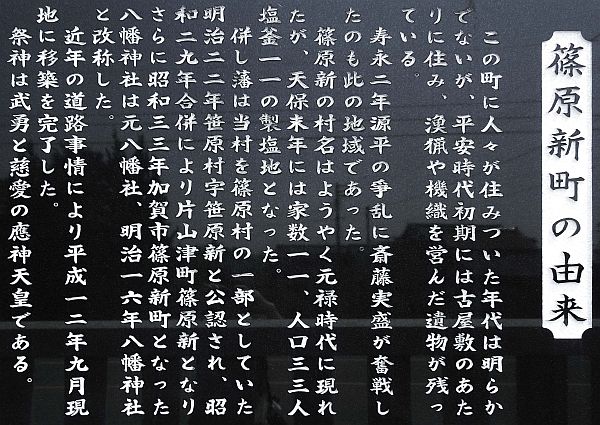 篠原新町の由来
この町に人々が住みついた年代は明らか
でないが、平安時代初期には古屋敷のあた
りに住み、漁猟や機織を営んだ遺物が残っ
ている。
寿永二年源平の争乱に斎藤実盛が奮戦し
たのも此の地域であった。
篠原新の村名はようやく元禄時代に現れ
たが、天保末年には家数一一、人口三三人
塩釜一一の製塩地となった。
併し藩は当村を篠原村の一部としていた
明治二二年笹原村字笹原新と公認され、昭
和二九年合併により片山津町篠原新となり
さらに昭和三三年加賀市篠原新町となった
八幡神社は元八幡社、明治一六年八幡神社
と改称した。
近年の道路事情により平成一二年九月現
地に移築を完了した。
祭神は武勇と慈愛の應神天皇である。